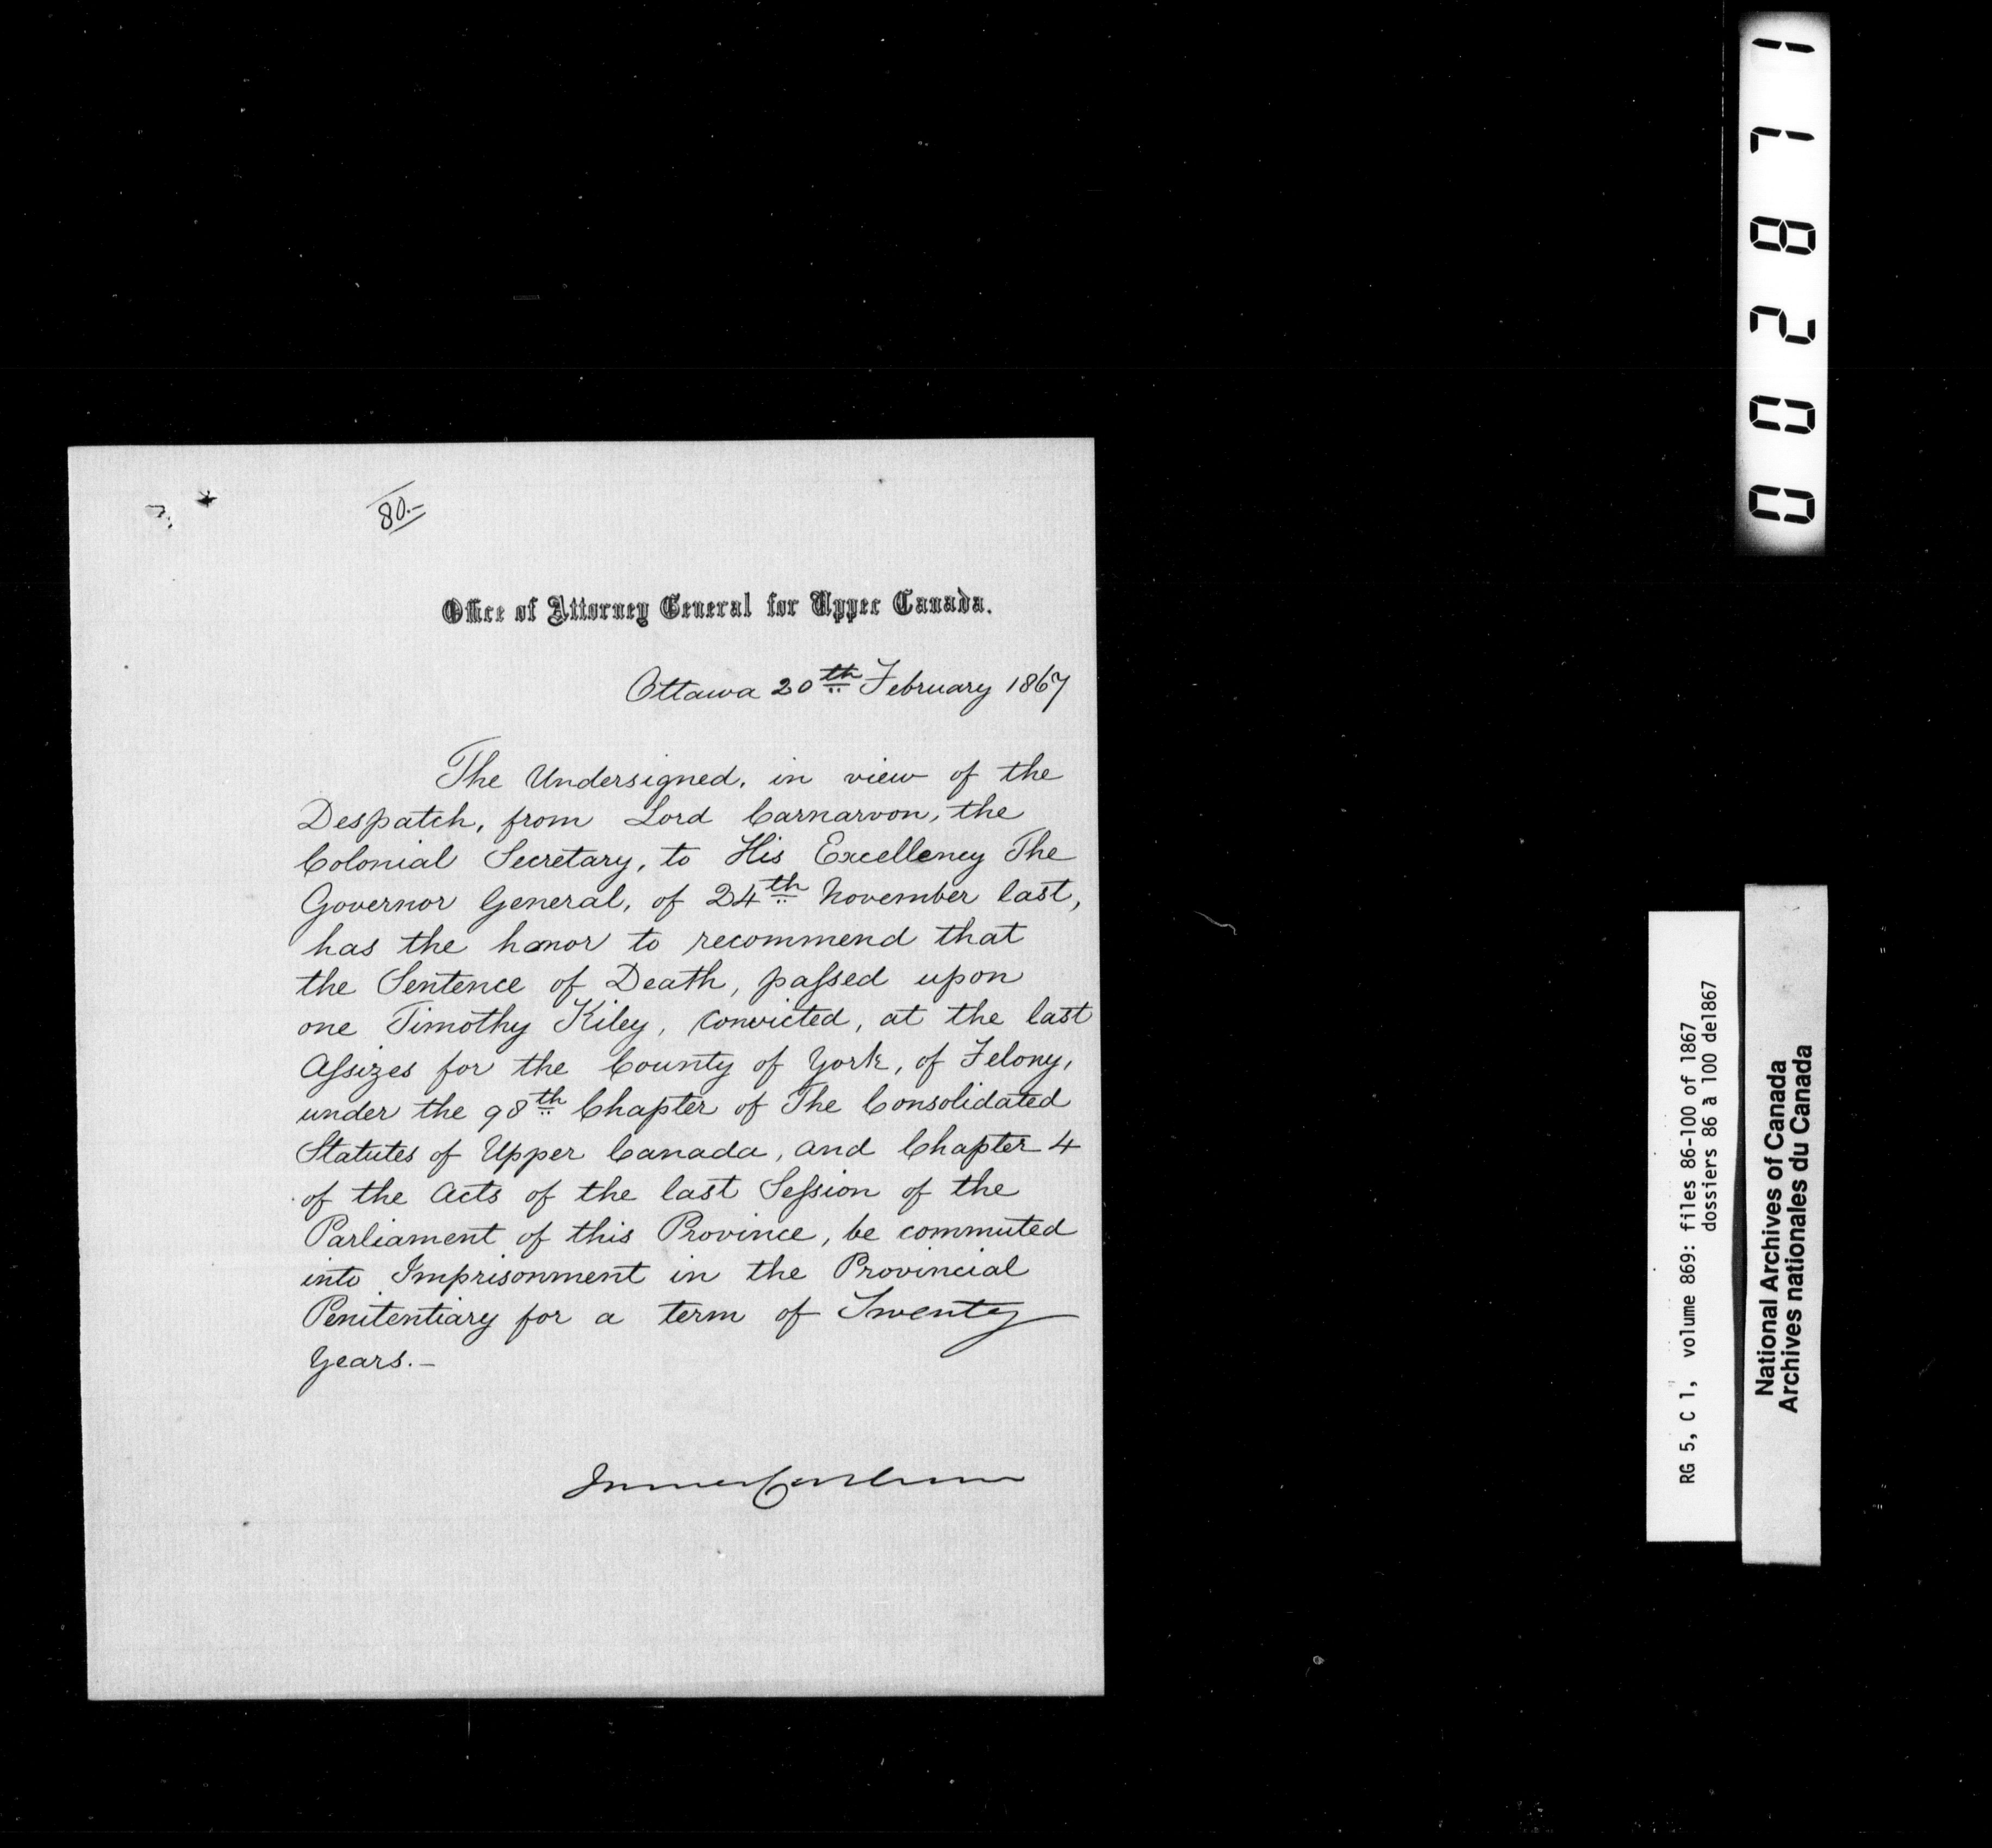 80.-
Office of Attorney General for Upper Canada.
Ottawa 20th February 1867
The Undersigned, in view of the
Despatch, from Lord Carnarvon, the
Colonial Secretary, to His Excellency The
Governor General, of 24th November last,
has the honor to recommend that
the Sentence of Death, passed upon
one Timothy Kiley, convicted, at the last
Assizes for the County of York, of Felony,
under the 98th Chapter of The Consolidated
Statutes of Upper Canada, and Chapter 4
of the Acts of the last Session of the
Parliament of this Province, be commuted
into Imprisonment in the Provincial
Penitentiary for a term of Twenty
Years.-
002871
RG 5, C 1, volume 869: files 86-100 of 1867
dossiers 86 à 100 de1867
National Archives of Canada
Archives nationales du Canada